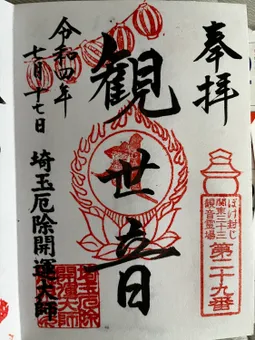 奉拝
ぼけ封じ
関東三十三
観音霊場
第二十九番
観世音
令和四年
七月十七日
埼玉厄除開運大師
埼玉厄除
開運大師